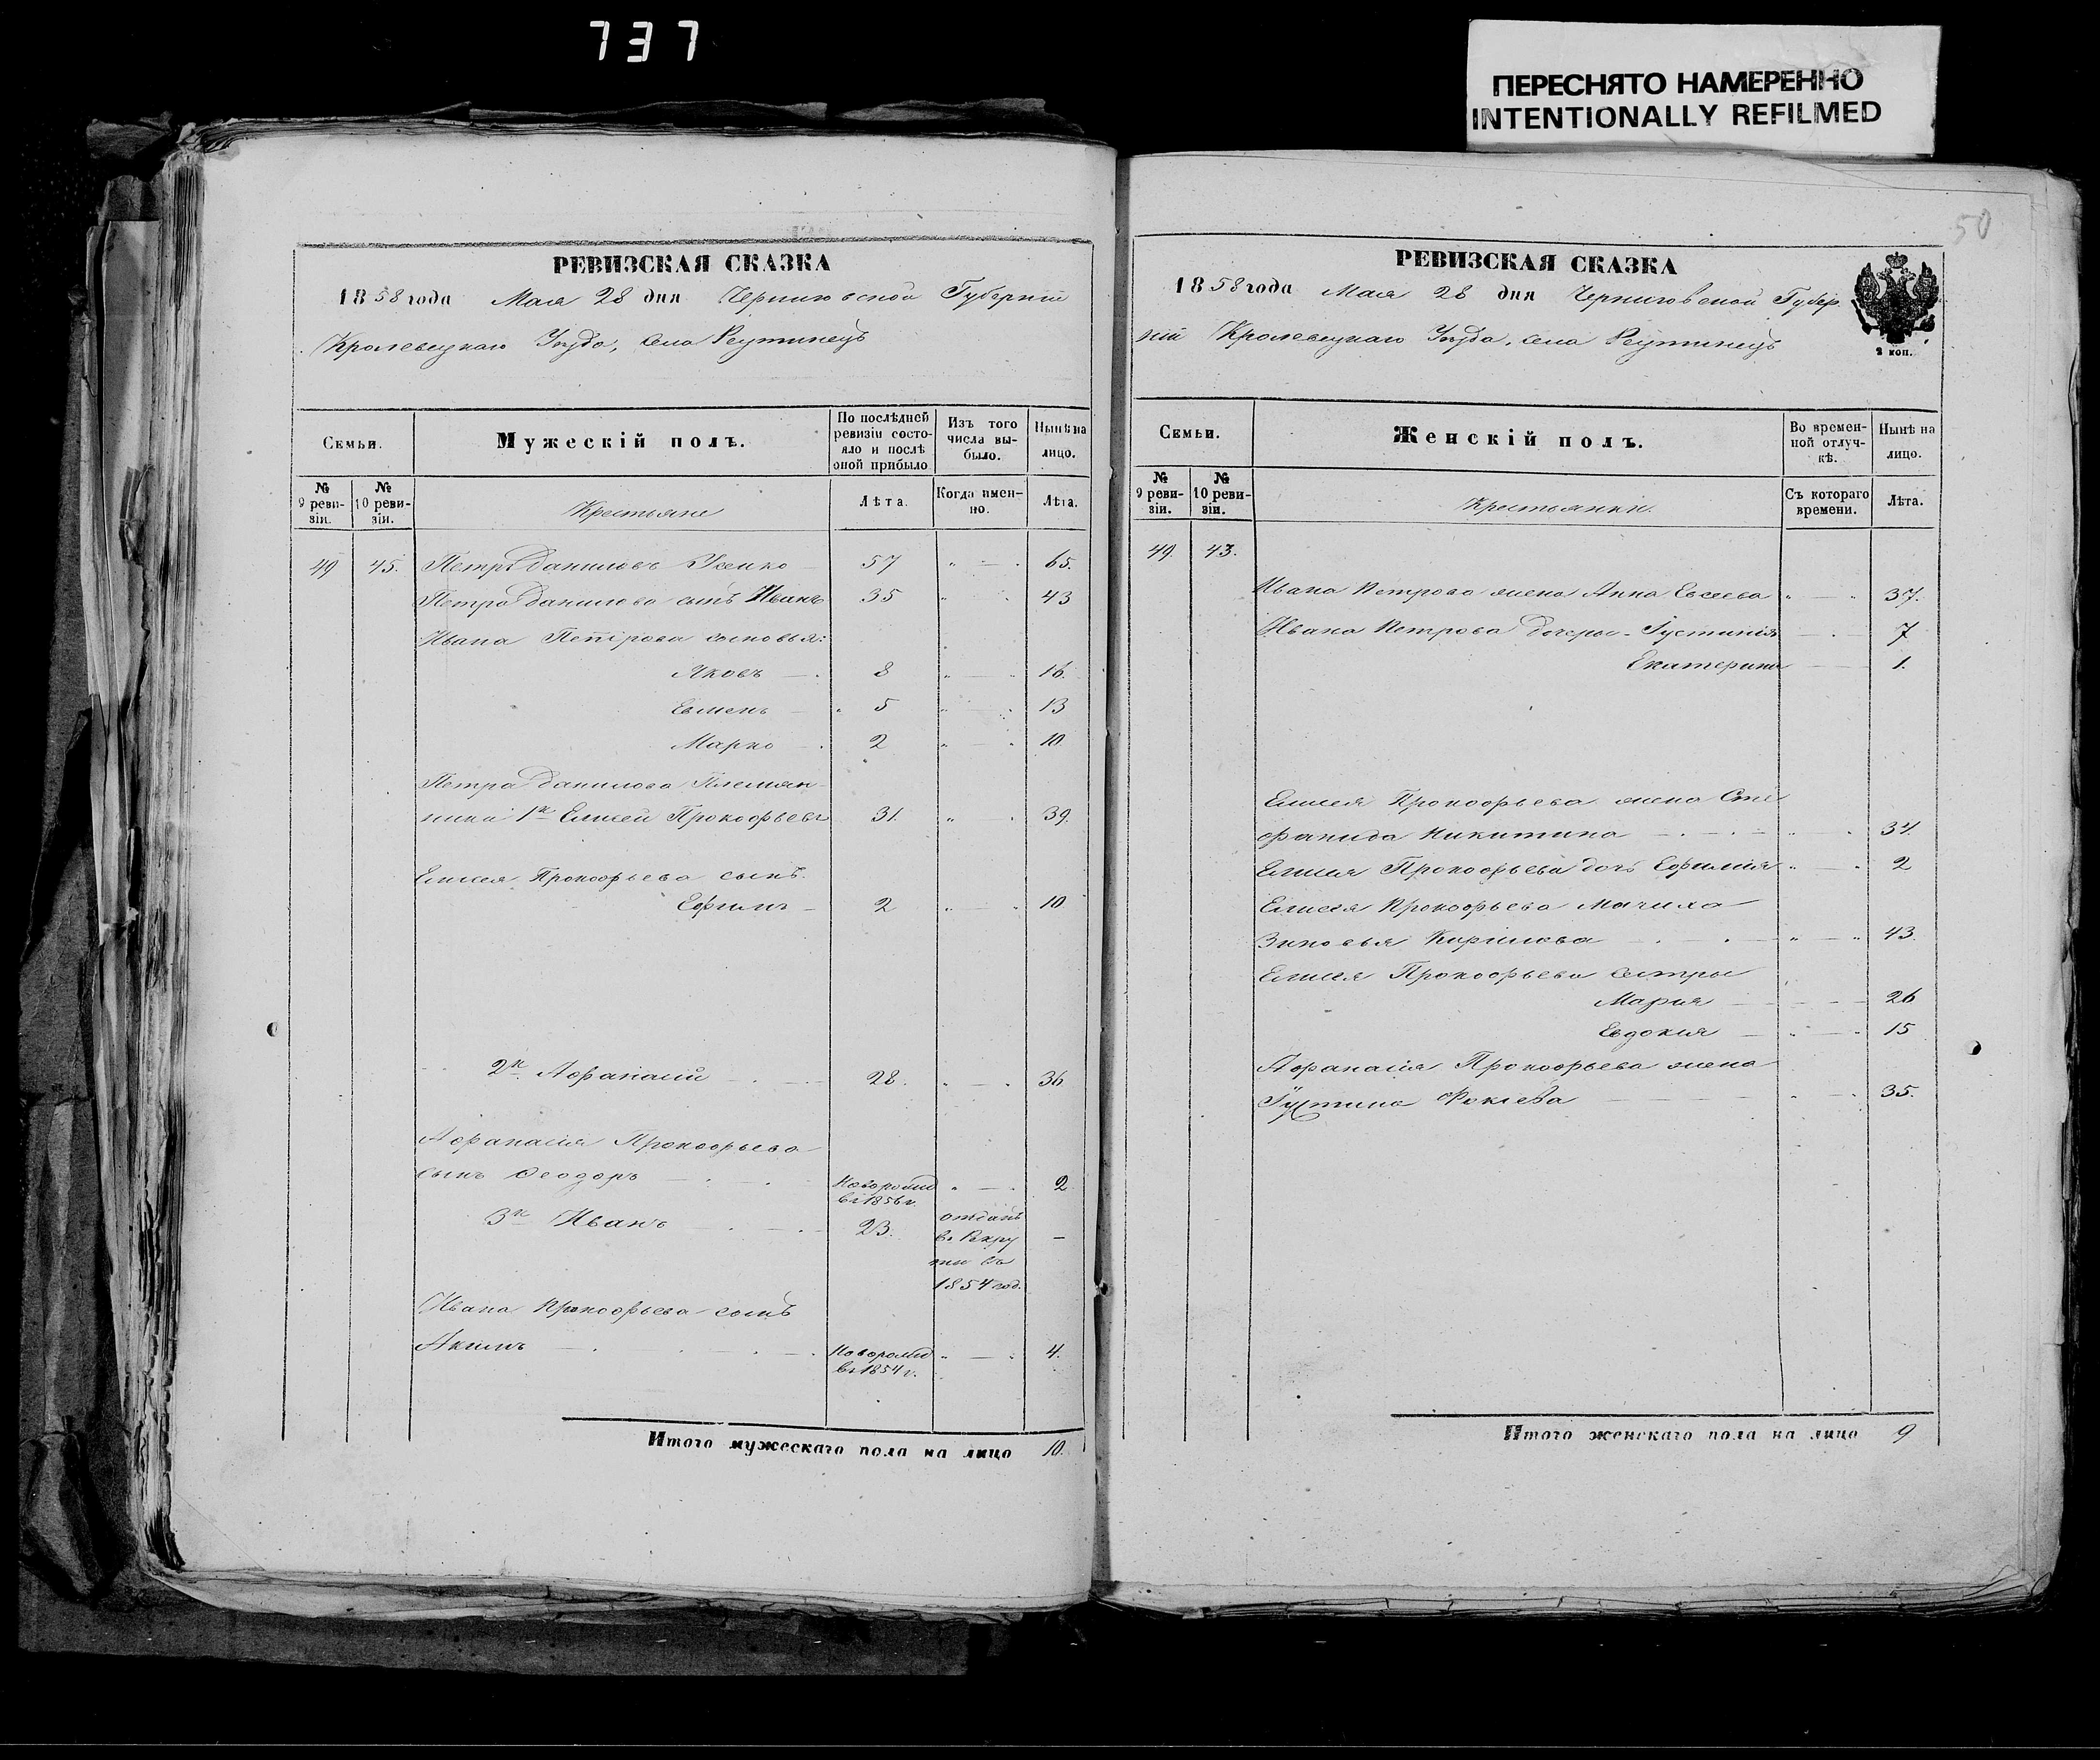 737
ПЕРЕСНЯТО НАМЕРЕННО
INTENTIONALLY REFILMED
РЕВИЗСКАЯ СКАЗКА
1858 года Мая 28 дня Черниговской Губерніи
Кролевецкаго Уѣзда, села Реутинецъ
Семьи.
Мужескій полъ.
По послѣдней ревизіи состояло и послѣ оной прибыло
Изъ того числа выбыло.
Нынѣ на лицо.
№ 9 ревизіи.
№ 10 ревизіи.
Крестьяне
Лѣта.
Когда именно.
Лѣта.
49 45. Петръ Даниловъ Усенко 57 " — . 65.
Петра Данилова сынъ Иванъ 35 " . 43
Ивана Петрова сыновья:
Яковъ — . 8 " — " 16.
Евменъ — 5 " — . 13
Марко — . 2 " — " 10
Петра Данилова Племян-
ники 1й Елисей Прокофьевъ 31. " — . 39.
Елисея Прокофьева сынъ.
Ефимъ — 2 " — " 10
2й Афанасій — . — 28. " — . 36
Афанасія Прокофьева
сынъ Феодоръ — . — . Новорожд " — . 2
въ 1856 г.
3й Иванъ — . — . 23. отданъ —
въ Рекру
ты въ
1854 год.
Ивана Прокофьева сынъ
Акимъ — . — . — . Новорожд " — . 4.
въ 1854 г.
Итого мужескаго пола на лицо 10.
50
РЕВИЗСКАЯ СКАЗКА
1858 года Мая 28 дня Черниговской Губер
ніи Кролевецкаго Уѣзда, села Реутинецъ
2 коп.
Семьи.
Женскій полъ.
Во временной отлучкѣ.
Нынѣ на лицо.
№ 9 ревизіи.
№ 10 ревизіи.
Крестьянки.
Съ котораго времени.
Лѣта.
49. 43.
Ивана Петрова жена Анна Евсеева " — " 37.
Ивана Петрова дочери - Іустинія — . — 7
Екатерина — 1.
Елисея Прокофьева жена Сте
фанида Никитина — . — . — " . 34.
Елисея Прокофьева дочь Ефимія " — " 2
Елисея Прокофьева Мачиха
Зиновья Кирилова — . — . — " — " 43.
Елисея Прокофьева сестры
Марія — — 26
Евдокия — " — " 15
Афанасія Прокофьева жена
Іустина Фокіева — — " — . 35.
Итого женскаго пола на лицо 9